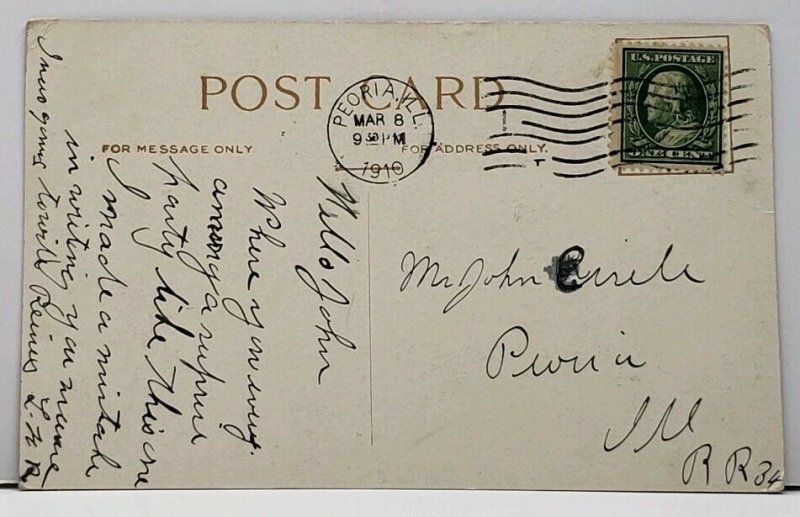 POST CARD
FOR MESSAGE ONLY
FOR ADDRESS ONLY.
PEORIA, ILL.
MAR 8
9 30 PM
1910
U.S. POSTAGE
ONE CENT
Hello John
Where you ever
among a suprise
party like this one
I made a mistake
in writing you name
I was going to write
L.H.R
Mr John Circle
Peoria
Ill
R R 34